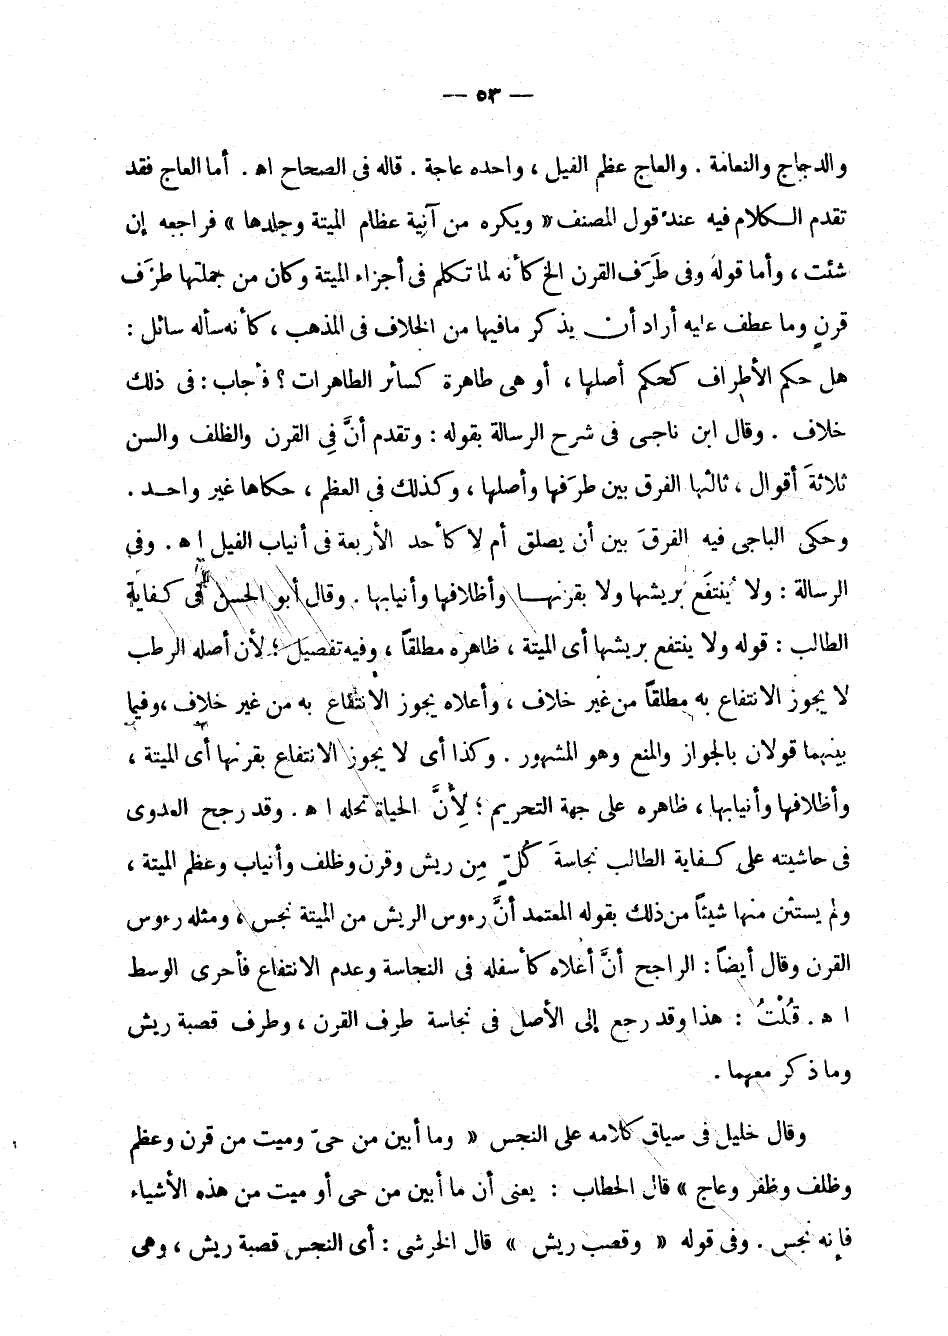 — ٥٣ —
والدجاج والنعامة . والعاج عظم الفيل ، واحده عاجة . قاله فى الصحاح اه . أما العاج فقد
تقدم الكلام فيه عند قول المصنف « ويكره من آنية عظام الميتة وجلدها » فراجعه إن
شئت ، وأما قوله وفى طَرَف القرن الخ كأنه لما تكلم فى أجزاء الميتة وكان من جملتها طرَف
قرنٍ وما عطف عليه أراد أن يذكر مافيها من الخلاف فى المذهب ، كأنه سأله سائل :
هل حكم الأطراف كحكم أصلها ، أو هى طاهرة كسائر الطاهرات ؟ فأجاب : فى ذلك
خلاف . وقال ابن ناجى فى شرح الرسالة بقوله : وتقدم أنَّ فِى القرن والظلف والسن
ثلاثةَ أقوال ، ثالثها الفرق بين طرَفها وأصلها ، وكذلك فى العظم ، حكاها غير واحد .
وحكى الباجى فيه الفرقَ بين أن يصلق أم لا كأحد الأربعة فى أنياب الفيل ا ه . وفى
الرسالة : ولا يُنتفَع بريشها ولا بقرنها وأظلافها وأنيابها . وقال أبو الحسن فى كفاية
الطالب : قوله ولا ينتفع بريشها أى الميتة ، ظاهره مطلقاً ، وفيه تفصيل ؛ لأن أصله الرطب
لا يجوز الانتفاع به مطلقاً من غير خلاف ، وأعلاه يجوز الانتفاع به من غير خلاف ، وفيما
بينهما قولان بالجواز والمنع وهو المشهور . وكذا أى لا يجوز الانتفاع بقرنها أى الميتة ،
وأظلافها وأنيابها ، ظاهره على جهة التحريم ؛ لِأنَّ الحياة تحله ا ه . وقد رجح العدوى
فى حاشيته على كفاية الطالب نجاسةَ كُلّ مِن ريش وقرن وظلف وأنياب وعظم الميتة ،
ولم يستثن منها شيئاً من ذلك بقوله المعتمد أنَّ رءوس الريش من الميتة نجس ، ومثله رءوس
القرن وقال أيضاً : الراجح أنَّ أعلاه كأسفله فى النجاسة وعدم الانتفاع فأحرى الوسط
ا ه . قُلْتُ : هذا وقد رجع إلى الأصل فى نجاسة طرف القرن ، وطرف قصبة ريش
وما ذكر معهما .
وقال خليل فى سياق كلامه على النجس « وما أبين من حىّ وميت من قرن وعظم
وظلف وظفر وعاج » قال الحطاب : يعنى أن ما أبين من حى أو ميت من هذه الأشياء
فإنه نجس . وفى قوله « وقصب ريش » قال الخرشى : أى النجس قصبة ريش ، وهى